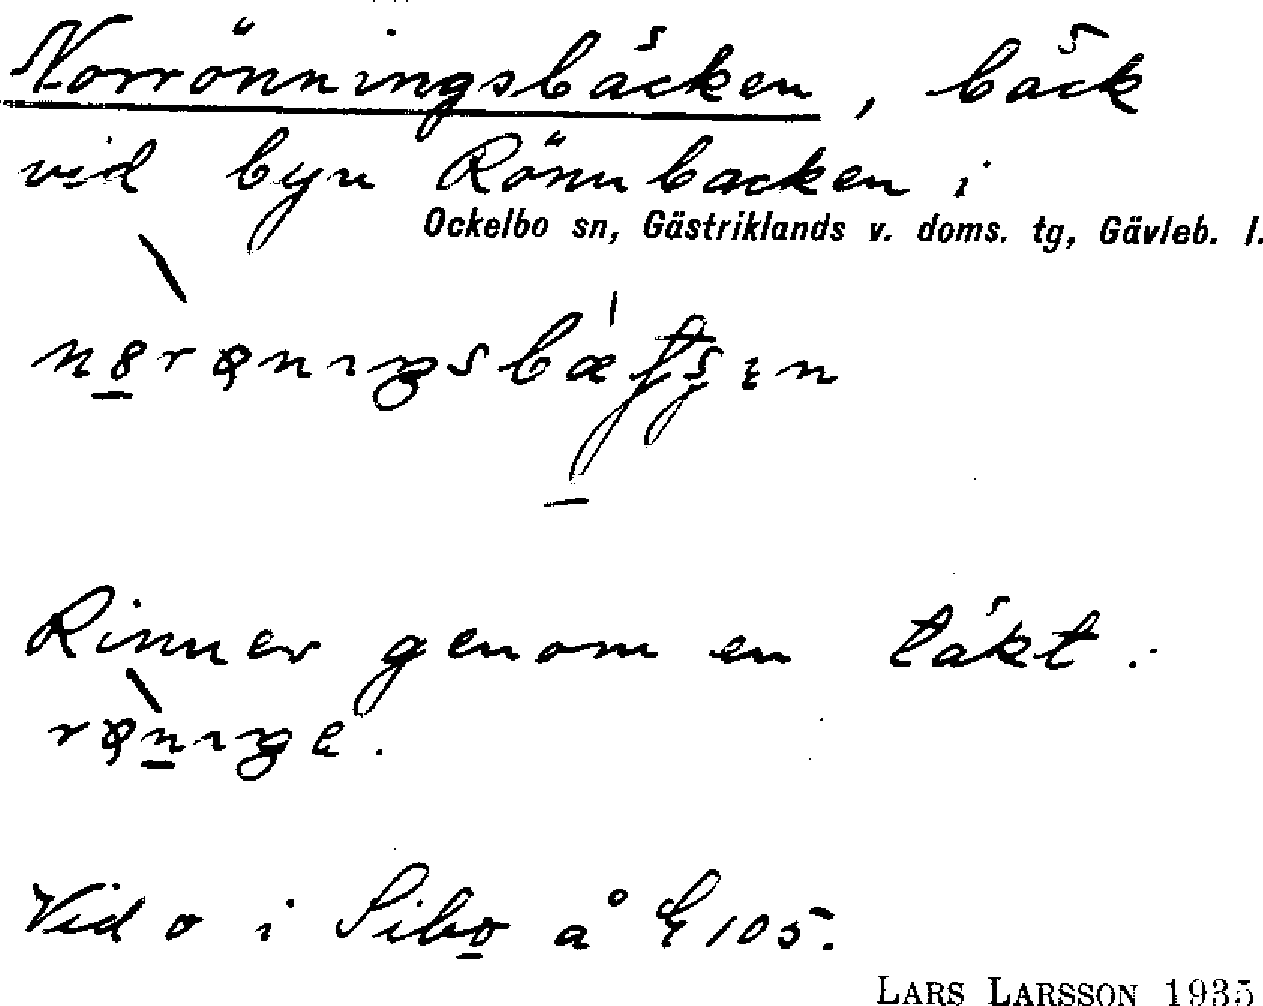 Norrönningsbäcken, bäck
vid byn Rönnbacken i
Ockelbo sn, Gästriklands v. doms. tg, Gävleb. l.
Rinner genom en täkt.
Vid o i Sibo å E 105.
LARS LARSSON 1935